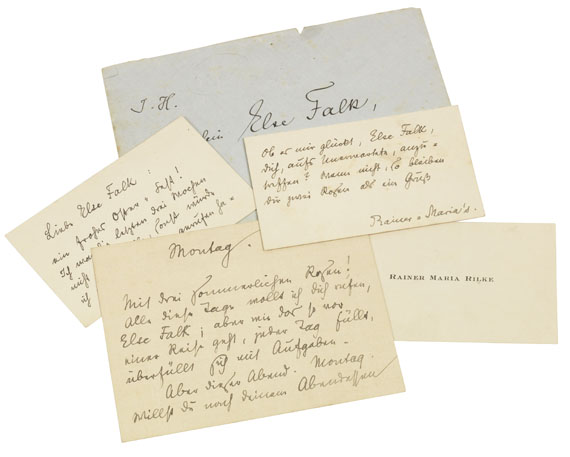 I. H.
Else Falk,
Liebe Else Falk:
ein großes Oper-Fest!
Ich
letzten drei Wochen
nicht
sonst würde
ich
anrufen
Ob es mir glückt, Else Falk,
Dich, aufs Unerwartete, anzu=
treffen? Wenn nicht, so bleiben
die zwei Rosen als ein Gruß
Rainer Maria's.
RAINER MARIA RILKE
Montag.
Mit drei sommerlichen Rosen!
Alle diese Tage wollt ich Dich rufen,
Else Falk; aber wie das so vor
einer Reise geht, jeder Tag füllt,
überfüllt sich mit Aufgaben.
Aber dieser Abend. Montag.
Willst du nach deinem Abendessen